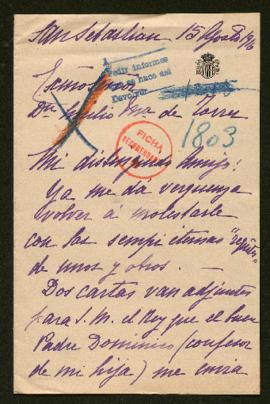 San Sebastian, 15 Agosto 1916
Pedir informes
se hace así
Devolver
Excmo Señor
Dn Emilio Mª de Torres
FICHA
1803
Mi distinguido Amigo:
Ya me dá verguenza
volver á molestarle
con las sempiternas
de unos y otros.
Dos cartas van adjuntas
para S. M. el Rey que el buen
Padre Dominico (confesor
de mi hija) me envia